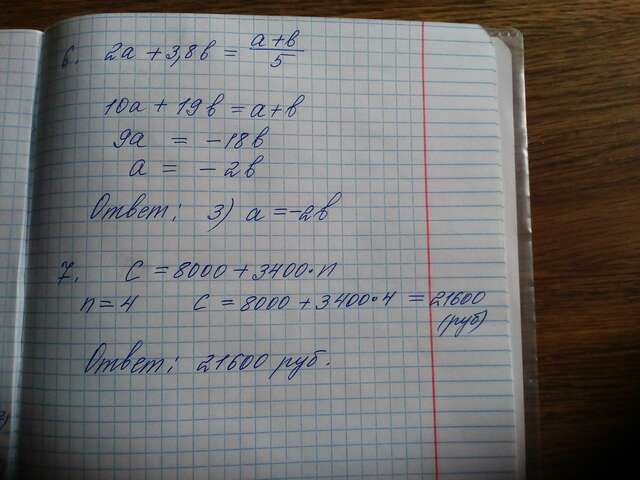 6. 2а + 3,8в = (а+в)/5
10а + 19в = а+в
9а = -18в
а = -2в
Ответ: 3) а = -2в
7. С = 8000 + 3400·n
n = 4 С = 8000 + 3400·4 = 21600
(руб)
Ответ: 21600 руб.